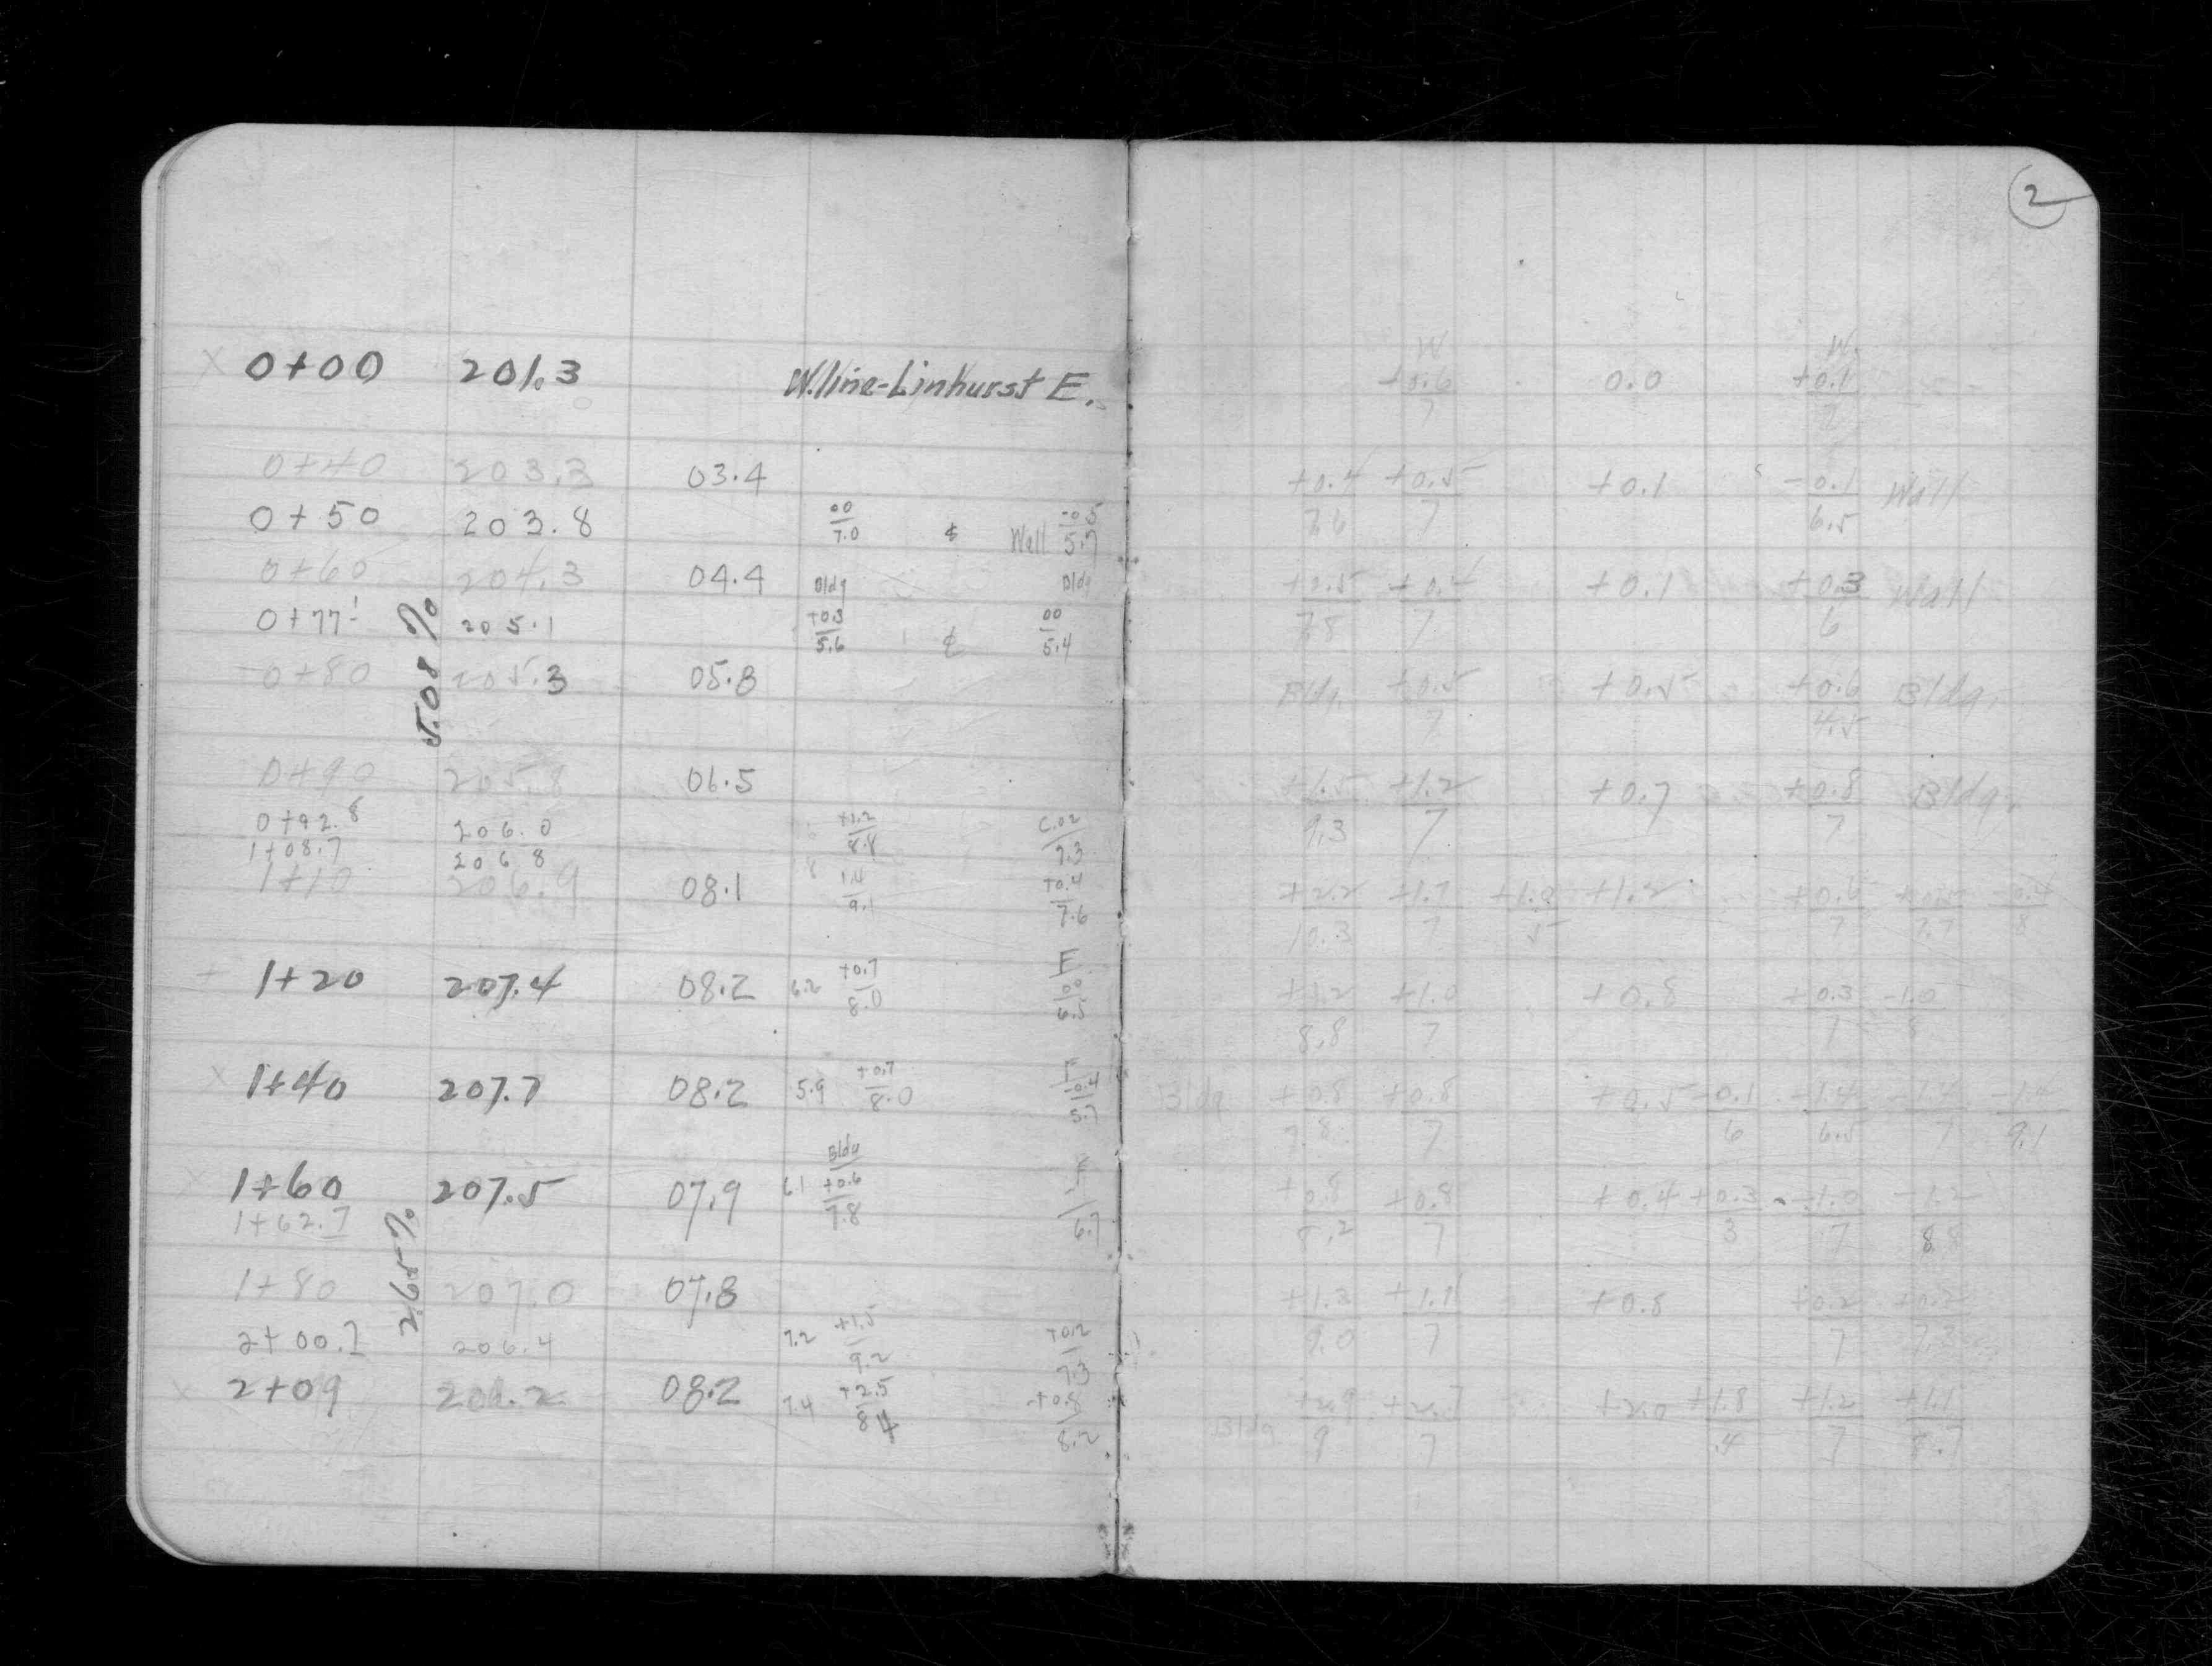 2
0+00 201.3 W. line-Linhurst E.
W +0.6/7 0.0 W. +0.1/7
0+40 203.3 03.4 +0.4/7.6 +0.5/7 +0.1 -0.1/6.5 Wall
0+50 203.8 00/7.0 ¢ Wall -0.5/5.7
0+60 204.3 04.4 Bldg Bldg +0.5/7.8 +0.4/7 +0.1 +0.3/6 Wall
0+77! 205.1 +0.3/5.6 ¢ 00/5.4
5.08%
0+80 205.3 05.8 Bldg. +0.5/7 +0.5 +0.6/4.5 Bldg.
0+90 205.8 06.5 +1.5/9.3 +1.2/7 +0.7 +0.8/7 Bldg.
0+92.8 206.0 +1.2/8.8 C.02/7.3
1+08.7 206.8 1.4/9.1 +0.4/7.6
1+10 206.9 08.1 +2.2/10.3 +1.7/7 +1.2 +0.6/7
1+20 207.4 08.2 6.2 +0.7/8.0 E 00/6.5 +1.2/8.8 +1.0/7 +0.8 +0.3/7 -1.0/8
1+40 207.7 08.2 5.9 +0.7/8.0 F -0.4/5.7 Bldg +0.8/7.8 +0.8/7 +0.5 -0.1/6 -1.4/6.5 -1.4/7 -1.4/9.1
1+60 207.5 07.9 6.1 Bldg +0.6/7.8 F 6.7 +0.8/8.2 +0.8/7 +0.4 +0.3/3 -1.0/7 -1.2/8.8
1+62.7
2.65%
1+80 207.0 07.8 +1.2/9.0 +1.1/7 +0.8 +0.2/7 +0.2/7.3
2+00.7 206.4 7.2 +1.5/9.2 +0.2/7.3
2+09 206.2 08.2 7.4 +2.5/8.4 +0.8/8.2 Bldg +2.9/9 +2.7/7 +2.0 +1.8/.4 +1.2/7 +1.1/8.7